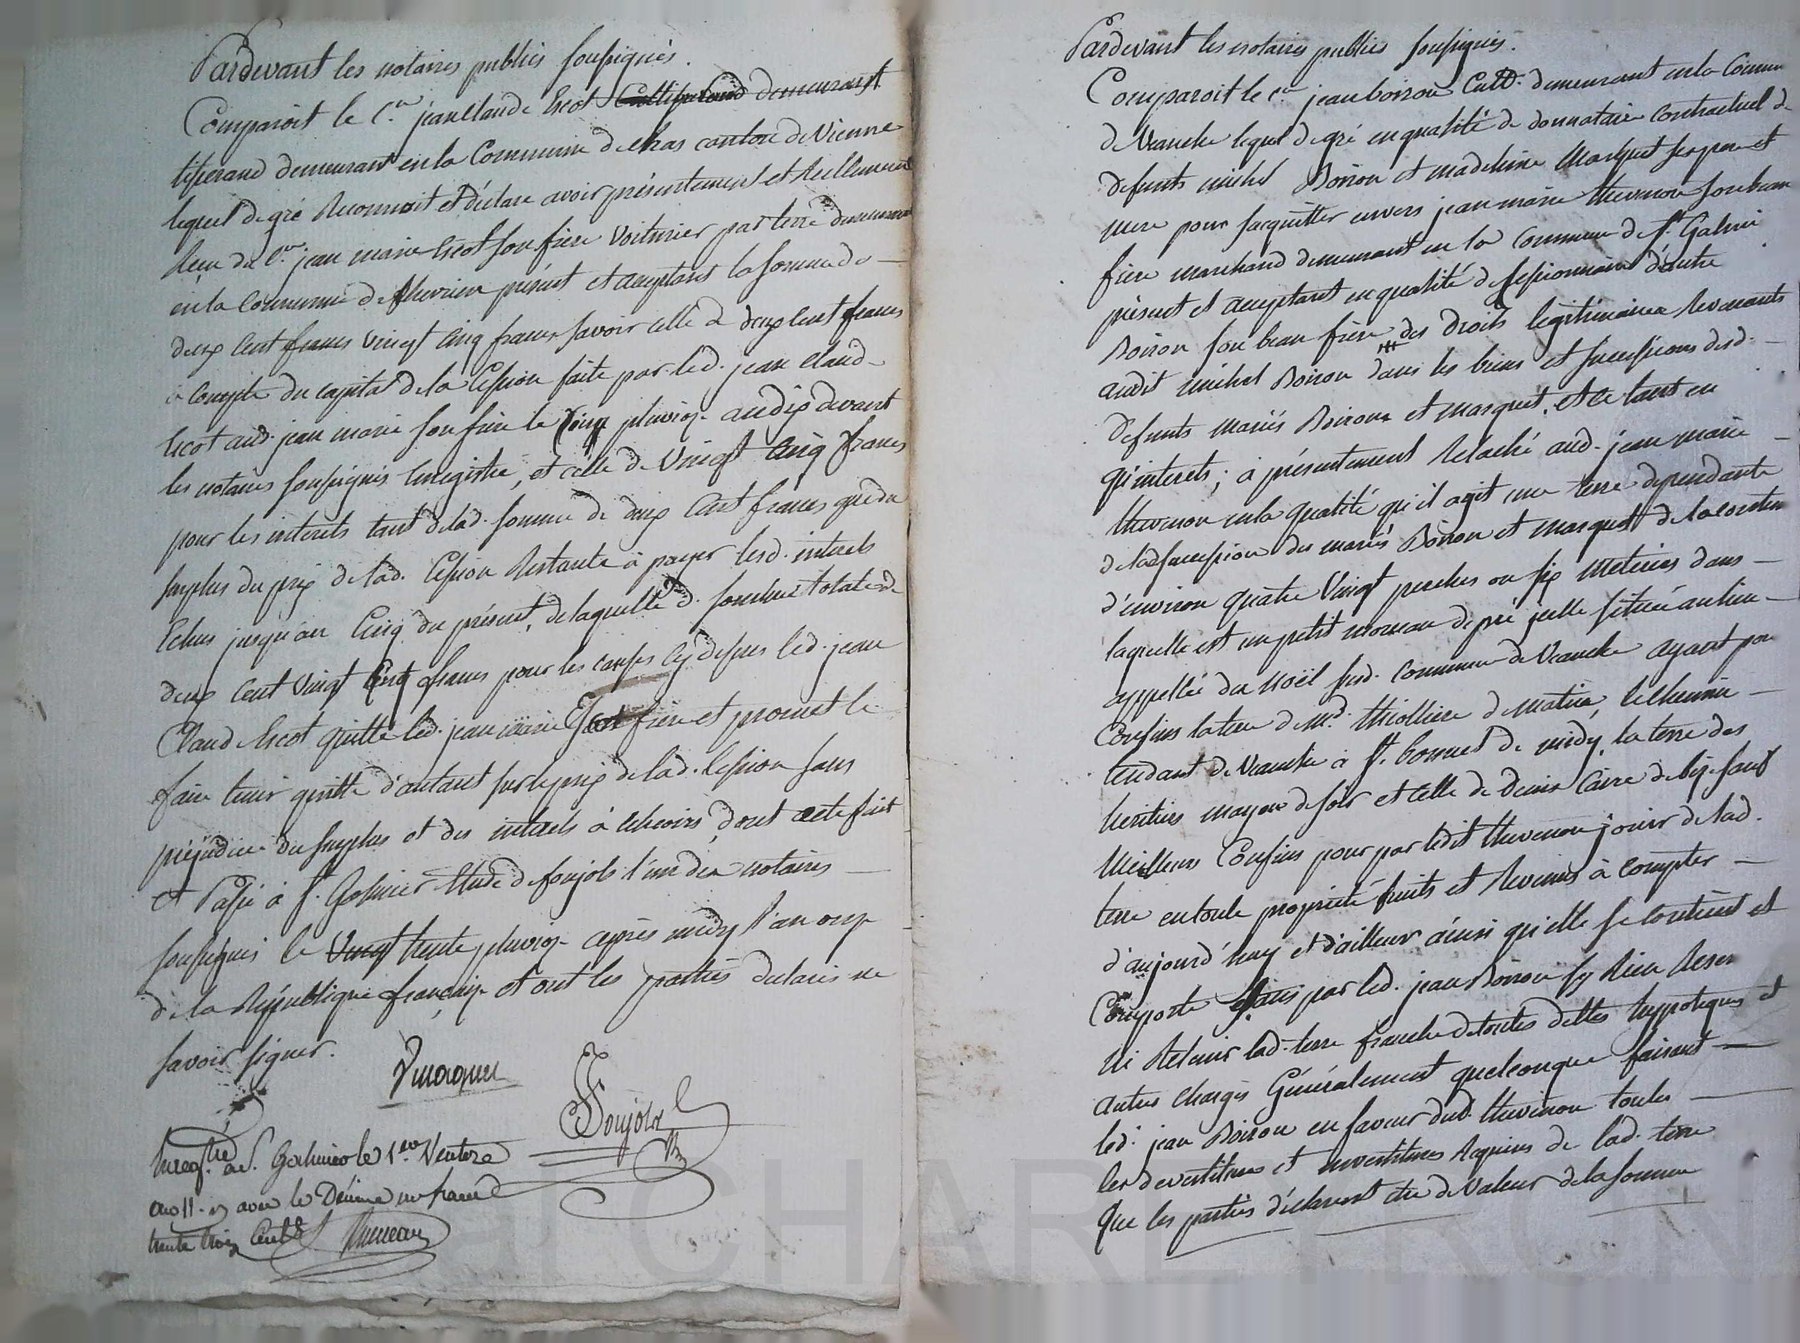 Pardevant les notaires publics soussignés.
Comparoit le C.en jean Claude Escot Cultivateur demeurant
tisserand demeurant en la Commune de chas canton de Vienne
lequel de gré Reconnoit et déclare avoir présentement et Réellement
Reçu du C.en jean marie Escot son frère Voiturier par terre demeurant
en la Commune de Chevrieu présent et acceptant la somme de
deux Cent francs vingt Cinq francs savoir celle de deux Cent francs
à compte du capital de la Cession faite par led. jean Claud
Escot aud. jean marie son frère le pluviose an dix devant
les notaires soussignés Enregistré, et celle de Vingt Cinq francs
pour les interets tant de lad. somme de deux Cent francs que du
surplus du prix de lad. Cession Restante à payer lesd. interets
Echus jusqu'au Cinq du présent, de laquelle d. somme totale de
deux Cent Vingt Cinq francs pour les causes cy dessus led. jean
Claud Escot quitte led. jean marie Escot frère et promet le
faire tenir quitte d'autant sur le prix de lad. Cession sans
préjudice du surplus et des interets à échoirs, dont acte fait
et Passé à S.t Galmier Etude de foujols l'un des notaires
soussignés le Vingt trente pluviose après midy l'an onze
de la République française et ont les parties déclaré ne
savoir signer.
Foujols
Enreg.tré à S. Galmier le 1.er Ventose
an 11. avec le Décime un franc
trente trois Cent.s
Pardevant les notaires publics soussignés.
Comparoit le C.en jean boiron Cult.r demeurant en la Commune
de Veauche lequel de gré en qualité de donnataire contractuel de
defunts michel Boiron et madelaine Marquet ses pere et
mere pour s'acquitter envers jean marie thevenon son beau
frère marchand demeurant en la commune de S.t Galmier
présent et acceptant en qualité de Cessionnaire d'autre
Boiron son beau frère des Droits légitimaires Revenants
audit michel Boiron dans les biens et successions desd.
defunts mariés Boiron et marquet, et ce tant en
qu'interets; a présentement Relaché aud. jean marie
thevenon en la qualité qu'il agit une terre dependante
de lad. succession des mariés Boiron et marquet de la contenue
d'environ quatre Vingt perches ou six meterées dans
laquelle est un petit morceau de pré jcelle située au lieu
appellé du Noël susd. commune de Veauche ayant pour
Confins la terre de m.d thiolliere de matin, le chemin
tendant de Veauche à S.t bonnet de midy, la terre des
heritiers mayon de soir et celle de Denis Caire de bize sauf
meilleurs Confins pour par ledit thevenon jouir de lad.
terre en toute propriété fruits et Revenus à compter
d'aujourd'huy et d'ailleur ainsi qu'elle se contient et
Comporte sans par led. jean Boiron s'y Rien Reser
ni Retenir lad. terre franche de toutes dettes hypoteques et
autres charges Généralement quelconque faisant
led. jean Boiron en faveur dud. thevenon toutes
les devestitures et investitures Requises de lad. terre
Que les parties déclarent être de Valeur de la somme
J CHARETRON